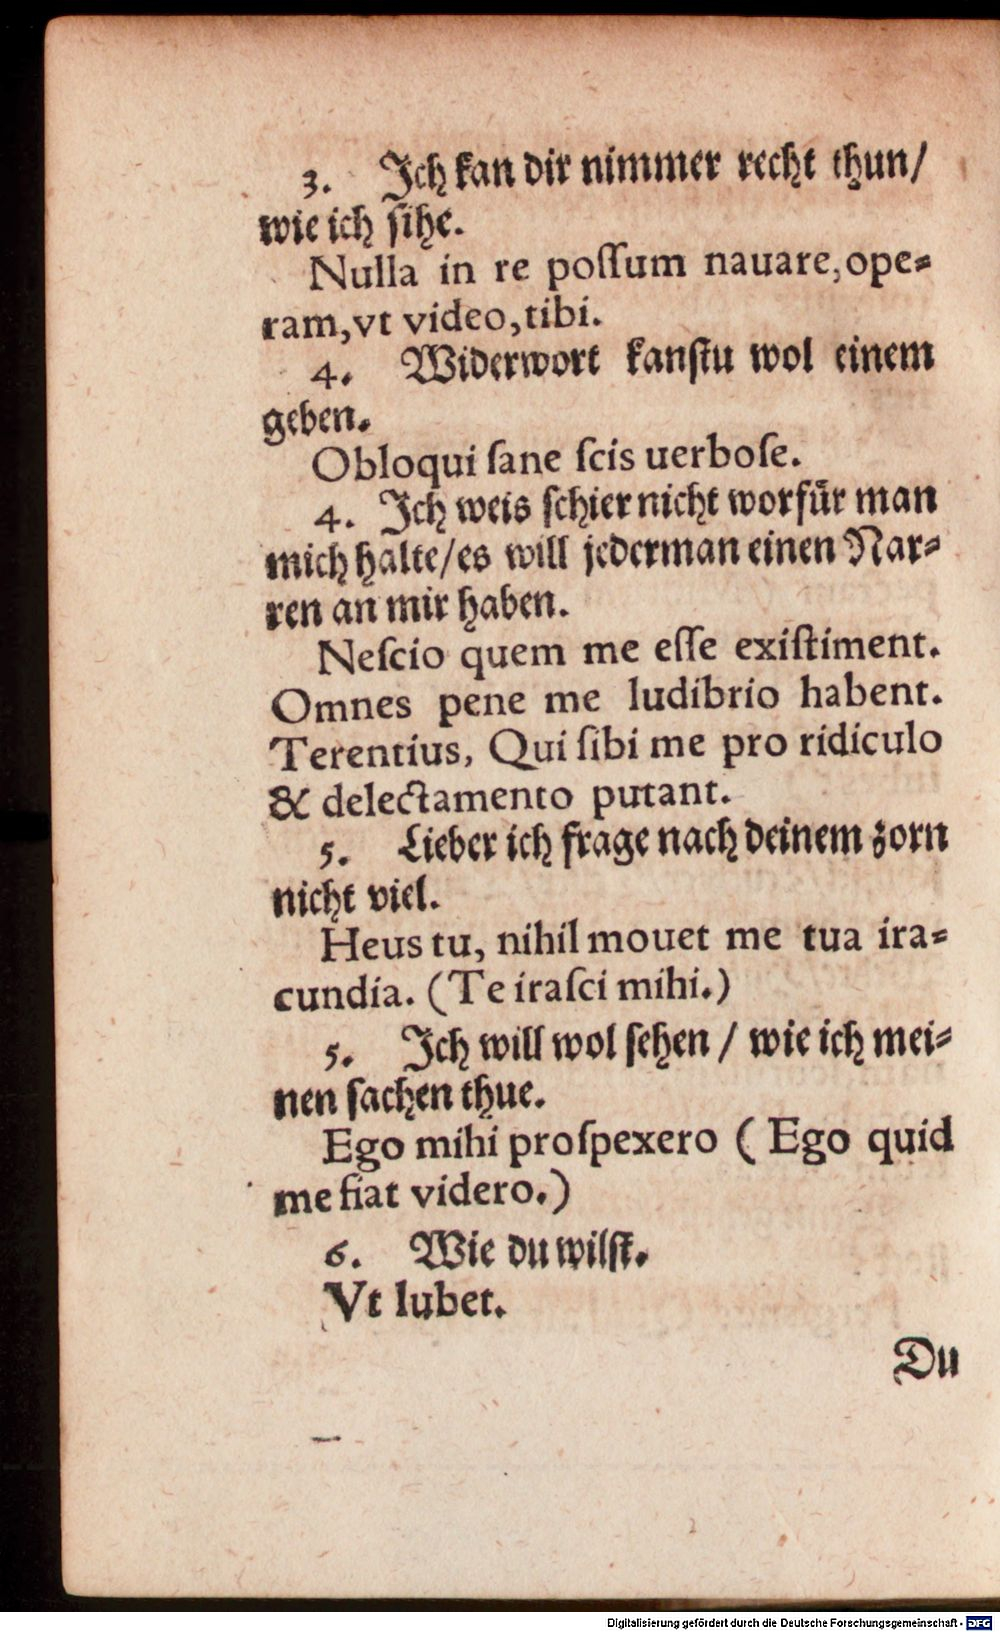 3. Ich kan dir nimmer recht thun/
wie ich sihe.
Nulla in re poſſum nauare, ope⸗
ram, vt video, tibi.
4. Widerwort kanſtu wol einem
geben.
Obloqui ſane ſcis uerboſe.
4. Ich weis ſchier nicht worfür man
mich halte/es will jederman einen Nar⸗
ren an mir haben.
Neſcio quem me eſſe exiſtiment.
Omnes pene me ludibrio habent.
Terentius, Qui ſibi me pro ridiculo
& delectamento putant.
5. Lieber ich frage nach deinem zorn
nicht viel.
Heus tu, nihil mouet me tua ira⸗
cundia. (Te iraſci mihi.)
5. Ich will wol ſehen / wie ich mei⸗
nen ſachen thue.
Ego mihi proſpexero ( Ego quid
me fiat videro.)
6. Wie du wilſt.
Vt lubet.
Du
Digitalisierung gefördert durch die Deutsche Forschungsgemeinschaft - DFG